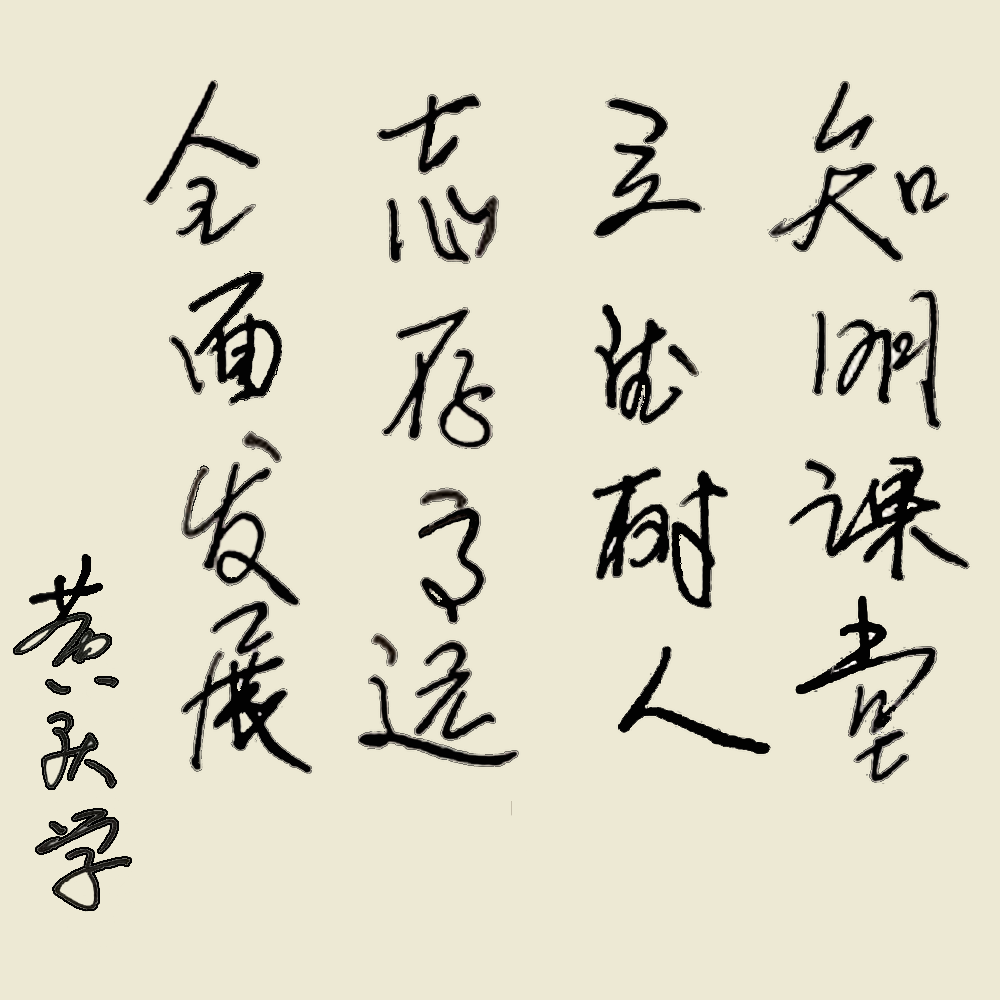 知明课堂
立德树人
志存高远
全面发展
黄 学